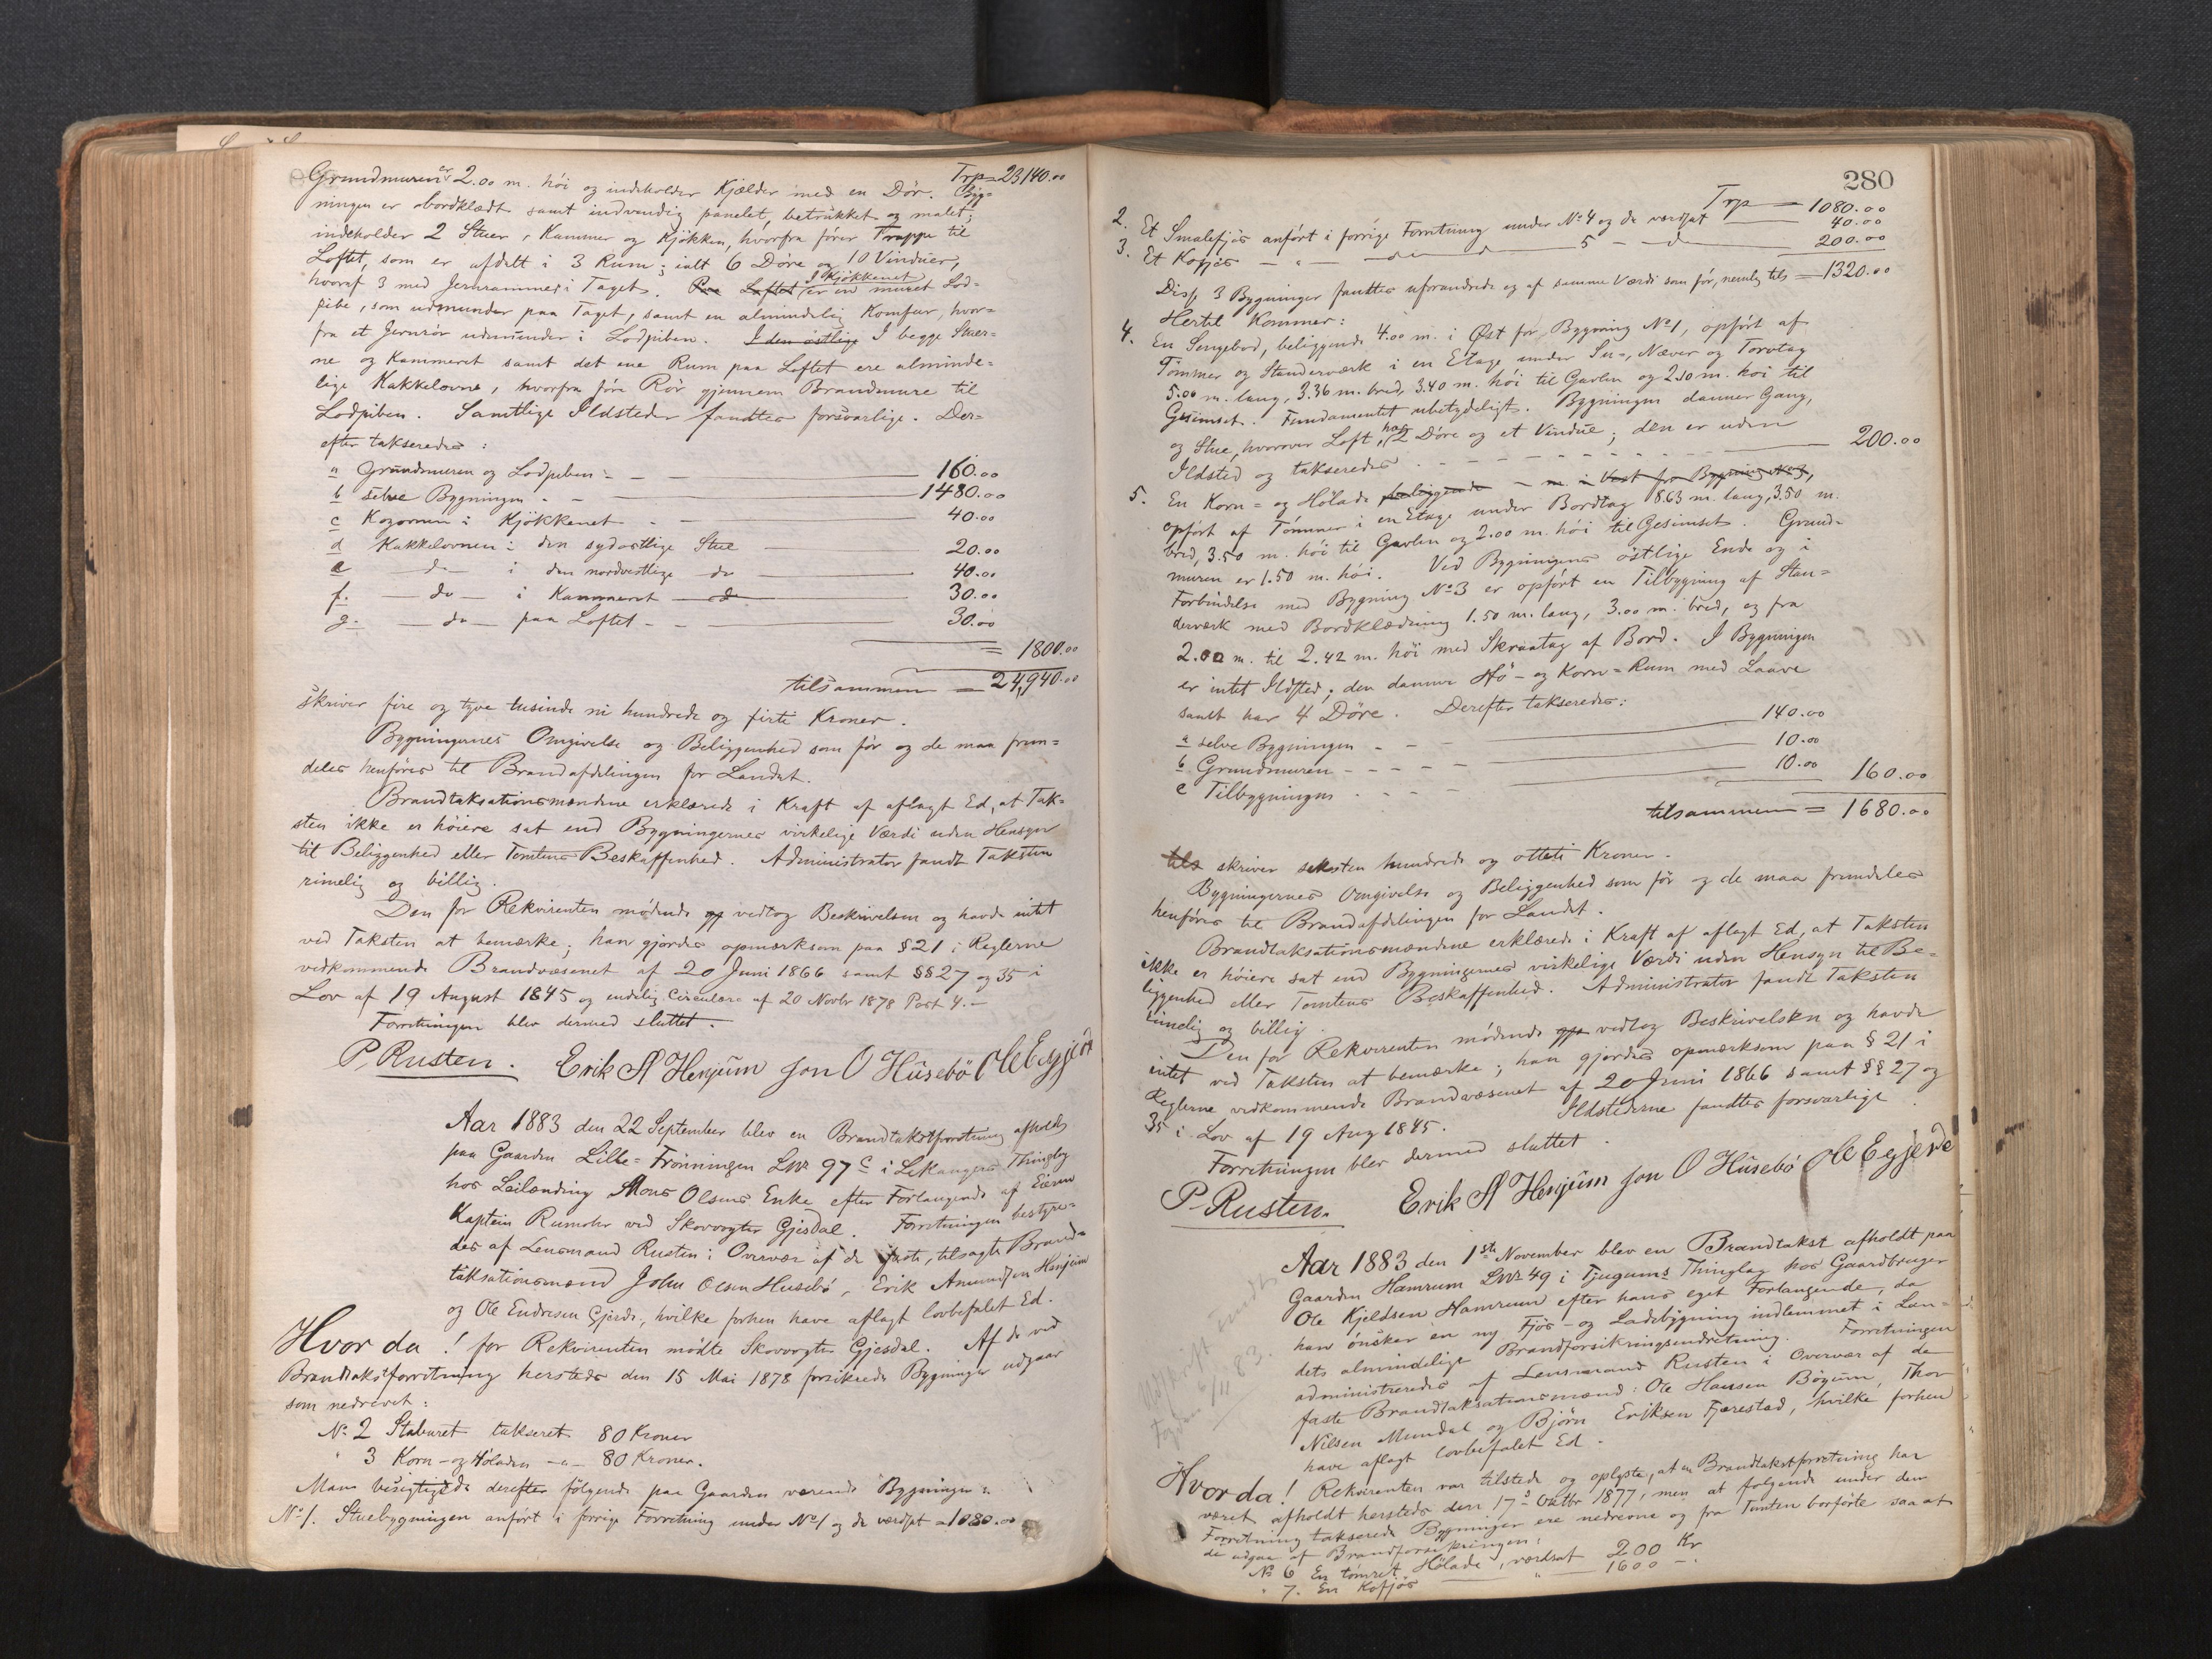 Trp = 23140.00
Grundmuren er 2.00 m. höi og indeholder Kjælder med en Dör. Byg=
ningen er bordklædt samt indvendig panelet, betrukket og malet;
indeholder 2 Stuer, Kammer og Kjökken, hvorfra fører Trappe til
Loftet, som er afdelt i 3 Rum; ialt 6 Döre og 10 Vinduer,
hvoraf 3 med Jernrammer i Taget. Paa Loftet I Kjökkenet er en muret Lod=
pibe, som udmunder paa Taget, samt en almindelig Komfur, hvor=
fra et Jernrör udmunder i Lodpiben. I den østlige I begge Stuer=
ne og Kammeret samt det ene Rum paa Loftet ere alminde=
lige Kakkelovne, hvorfra före Rör gjennem Brandmure til
Lodpiben. Samtlige Ildsteder fandtes forsvarlige. Der=
efter takseredes:
a Grundmuren og Lodpiben = 160.00
b selve Bygningen - - 1480.00
c Kogovnen i Kjökkenet - 40.00
d Kakkelovnen i den sydøstlige Stue 20.00
e — do — i den nordvestlige do 40.00
f. — do — i Kammeret 30.00
g. — do — paa Loftet - - 30.00
= 1800.00
tilsammen = 24,940.00
skriver fire og tyve tusinde ni hundrede og firti Kroner.
Bygningernes Omgivelse og Beliggenhed som för og de maa frem=
deles henföres til Brandafdelingen for Landet.
Brandtaksationsmændene erklærede i Kraft af aflagt Ed, at Tak=
sten ikke er höiere sat end Bygningernes virkelige Værdi uden Hensyn
til Beliggenhed eller Tomtens Beskaffenhed. Administrator fandt Taksten
rimelig og billig.
Den for Rekvirenten mödende vedtog Beskrivelsen og havde intet
ved Taksten at bemærke; han gjordes opmærksom paa § 21 i Reglerne
vedkommende Brandvæsenet af 20 Juni 1866 samt §§ 27 og 35 i
Lov af 19 August 1845 og endelig Circulære af 20 Novbr 1878 Post 4.—
Forretningen blev dermed sluttet.
P. Rusten. Erik A Henjum Jon O Husebö Ole E Gjerde
Aar 1883 den 22 September blev en Brandtakstforretning afholdt
paa Gaarden Lille=Frönningen LNr 97 c i Lekangers Thinglag
hos Leilænding Mons Olsens Enke efter Forlangende af Eieren
Kaptein Rumohr ved Skovvogter Gjesdal. Forretningen bestyre=
des af Lensmand Rusten i Overvær af de faste, tilsagte Brand=
taksationsmænd John Olsen Husebö, Erik Amundsen Henjum
og Ole Endresen Gjerde, hvilke forhen have aflagt lovbefalet Ed.
Hvor da! for Rekvirenten mödte Skovvogter Gjesdal. Af de ved
Brandtakstforretning hersteds den 15 Mai 1878 forsikrede Bygninger udgaar
som nedrevet:
No 2 Staburet takseret 80 Kroner
" 3 Korn- og Höladen -"- 80 Kroner.
Man besigtigede derefter fölgende paa Gaarden værende Bygninger:
No 1. Stuebygningen anfört i forrige Forretning under No 1 og da værdsat = 1080.00
280
Trp = 1080.00
2. Et Smalefjös anfört i forrige Forretning under No 4 og da værdsat 40.00
3. Et Kofjös — " — do 5 - do 200.00
Disse 3 Bygninger fandtes uforandrede og af samme Værdi som för, nemlig tils = 1320.00
Hertil kommer:
4. En Sengebod, beliggende 4.00 m. i Øst for Bygning No 1, opfört af
Tömmer og Stenderværk i en Etage under Su-, Næver og Torvtag
5.00 m. lang, 3.36 m. bred, 3.40 m. höi til Gavlen og 2.10 m. höi til
Gesimset. Fundamentet ubetydeligt. Bygningen danner Gang,
og Stue, hvorover Loft, har 2 Döre og et Vindue; den er uden
Ildsted og takseredes 200.00
5. En Korn= og Hölade beliggende - m. i Vest for Bygning No 3,
opfört af Tömmer i en Etage under Bordtag 8.63 m. lang, 3.50 m.
bred, 3.50 m. höi til Gavlen og 2.00 m. höi til Gesimset. Grund=
muren er 1.50 m. höi. Ved Bygningens östlige Ende og i
Forbindelse med Bygning No 3 er opfört en Tilbygning af Sten=
derværk med Bordklædning 1.50 m. lang, 3.00 m. bred, og fra
2.00 m. til 2.42 m. höi med Skraatag af Bord. I Bygningen
er intet Ildsted; den danner Hö- og Korn=Rum med Laave
samt har 4 Döre. Derefter takseredes:
a selve Bygningen - - 140.00
b Grundmuren - - - - 10.00
c Tilbygningen - - - 10.00 160.00
tilsammen = 1680.00
tils skriver seksten hundrede og otteti Kroner.
Bygningernes Omgivelse og Beliggenhed som för og de maa fremdeles
henföres til Brandafdelingen for Landet.
Brandtaksationsmændene erklærede i Kraft af aflagt Ed, at Taksten
ikke er höiere sat end Bygningernes virkelige Værdi uden Hensyn til Be=
liggenhed eller Tomtens Beskaffenhed. Administrator fandt Taksten
rimelig og billig.
Den for Rekvirenten mödende vedtog Beskrivelsen og havde
intet ved Taksten at bemærke; han gjordes opmærksom paa § 21 i
Reglerne vedkommende Brandvæsenet af 20 Juni 1866 samt §§ 27 og
35 i Lov af 19 Aug 1845. Ildstederne fandtes forsvarlige.
Forretningen blev dermed sluttet.
P. Rusten. Erik A Henjum Jon O Husebö Ole E Gjerde
Aar 1883 den 1ste November blev en Brandtakst afholdt paa
Gaarden Hamrum LNr 49 i Tjugums Thinglag hos Gaardbruger
Ole Kjeldsen Hamrum efter hans eget Forlangende, da
han önsker en ny Fjös- og Ladebygning indlemmet i Lan=
dets almindelige Brandforsikringsindretning. Forretningen
administreredes af Lensmand Rusten i Overvær af de
faste Brandtaksationsmænd: Ole Hansen Böyum, Thor
Nilsen Mundal og Björn Eriksen Tjærestad, hvilke forhen
have aflagt lovbefalet Ed.
6/11 83.
Hvor da! Rekvirenten var tilstede og oplyste, at en Brandtakstforretning har
været afholdt hersteds den 17de Oktbr 1877, men at fölgende under den
Forretning takserede Bygninger ere nedrevne og fra Tomten bortförte saa at
de udgaa af Brandforsikringen:
No 6 En tömret Hölade, værdsat 200 Kr
" 7. En Kofjös " 1600 -